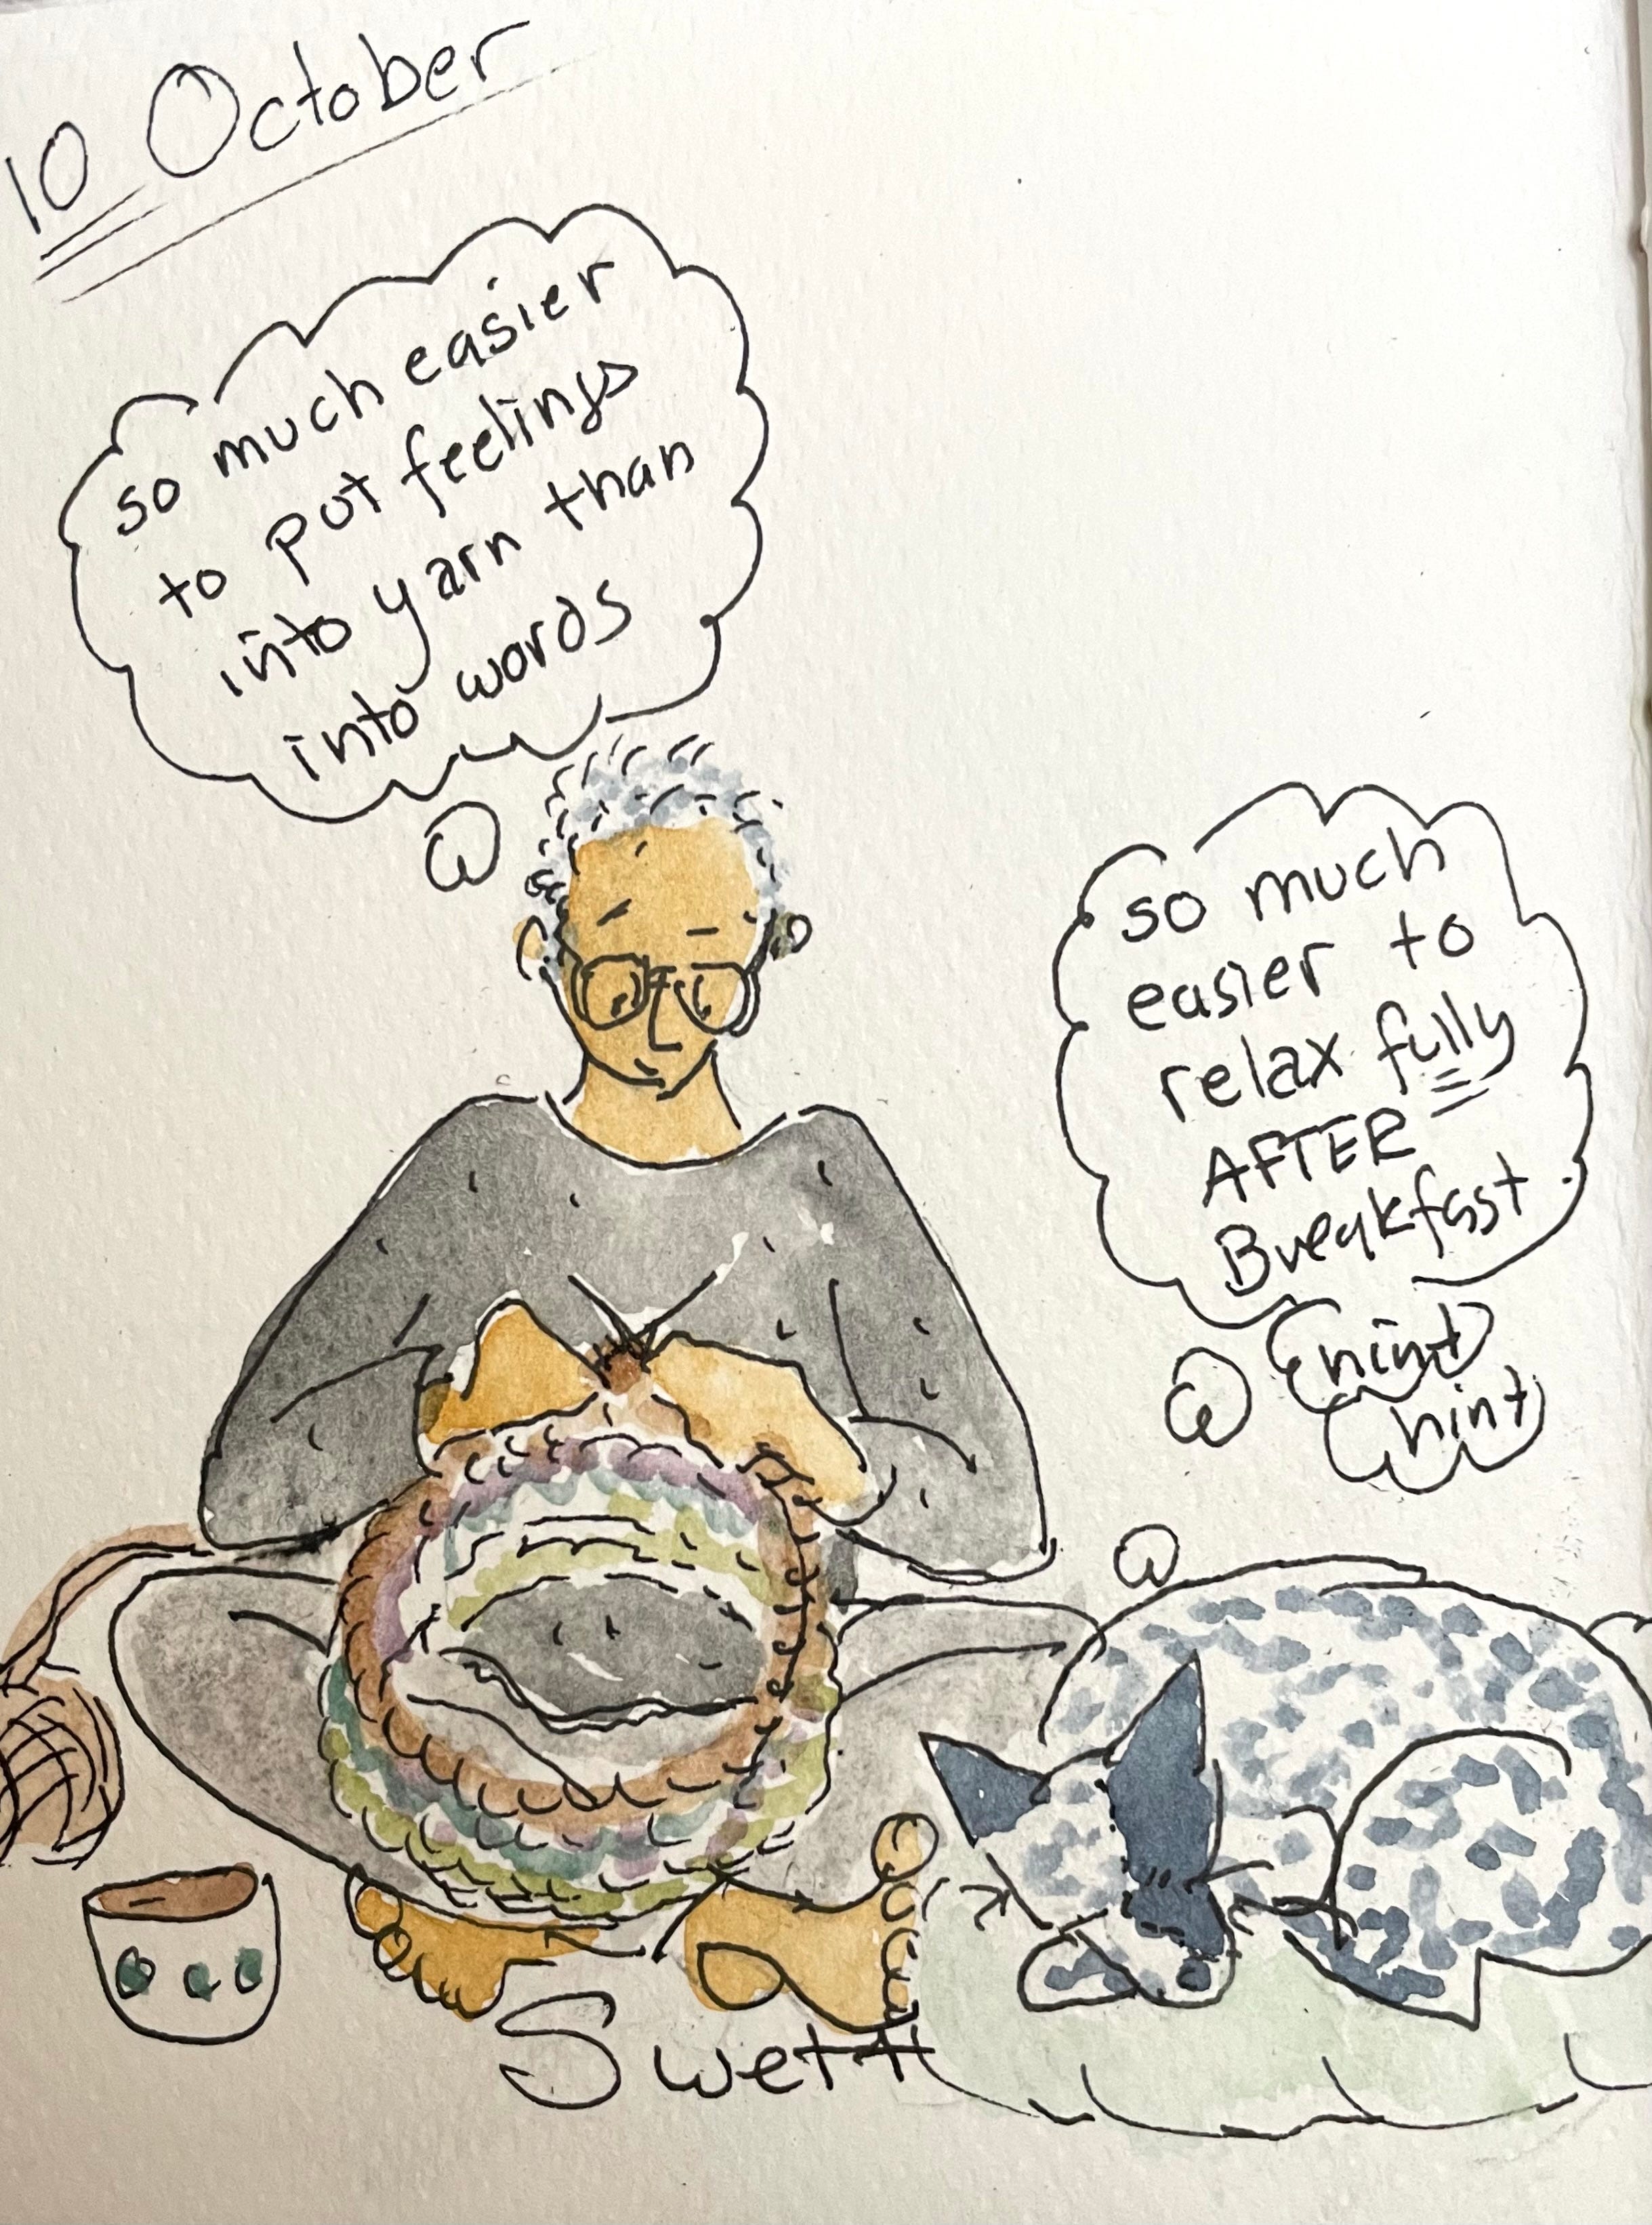 10 October
so much easier
to put feelings
into yarn than
into words
so much
easier to
relax fully
AFTER
Breakfast.
hint
hint
Swett